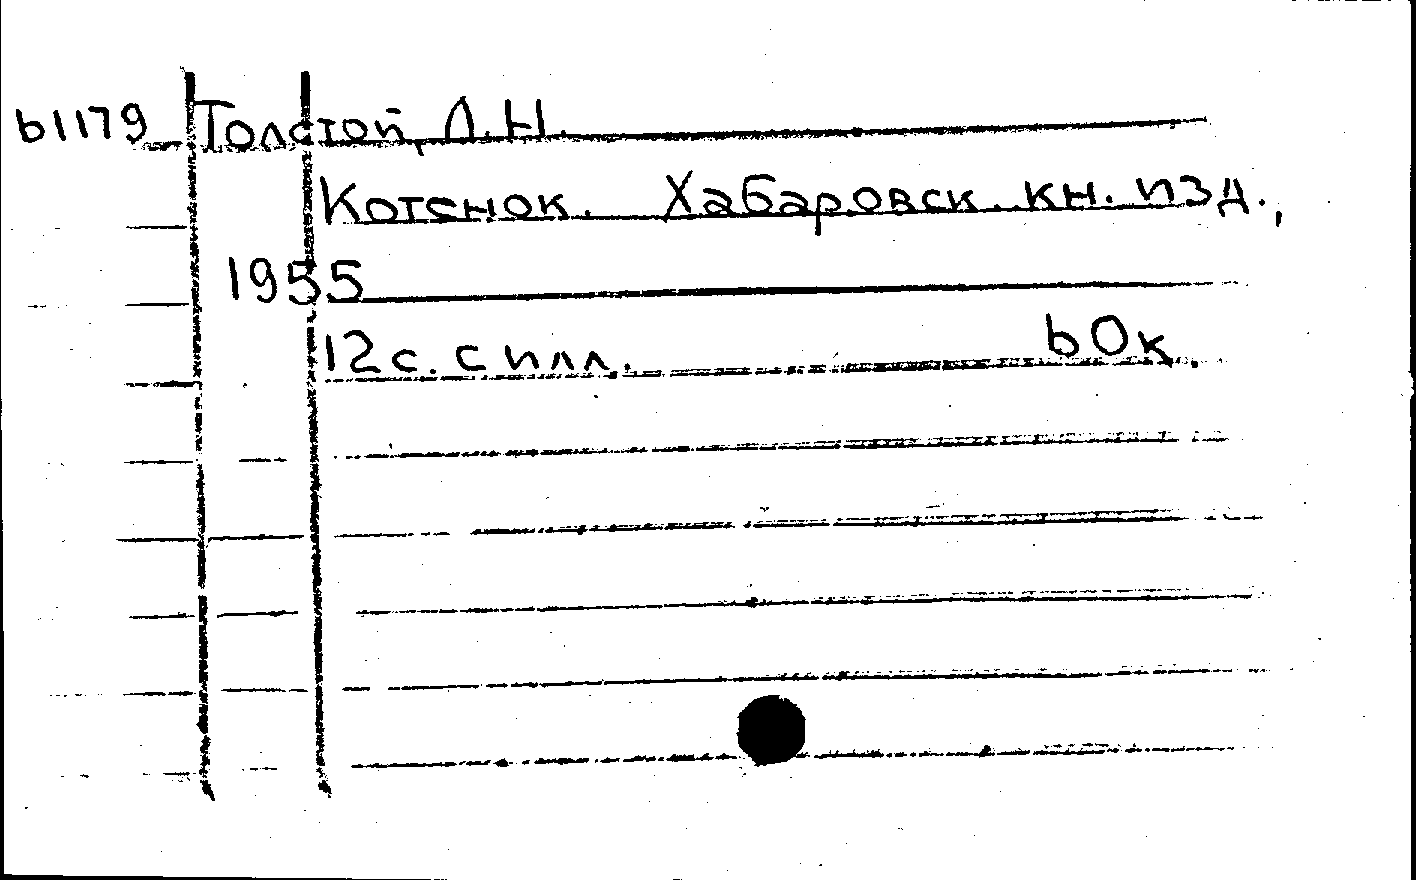 61179 Толстой, Л.Н.
Котенок. Хабаровск. кн. изд.,
1955
12 с. с илл. 60к.